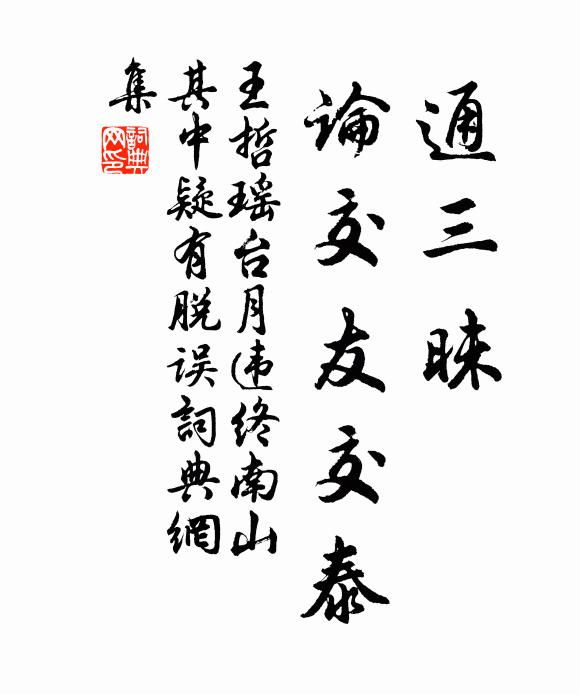 通三昧
論交友交泰
王哲瑶台月违终南山
其中疑有脱误詞典網
集
詞典网印